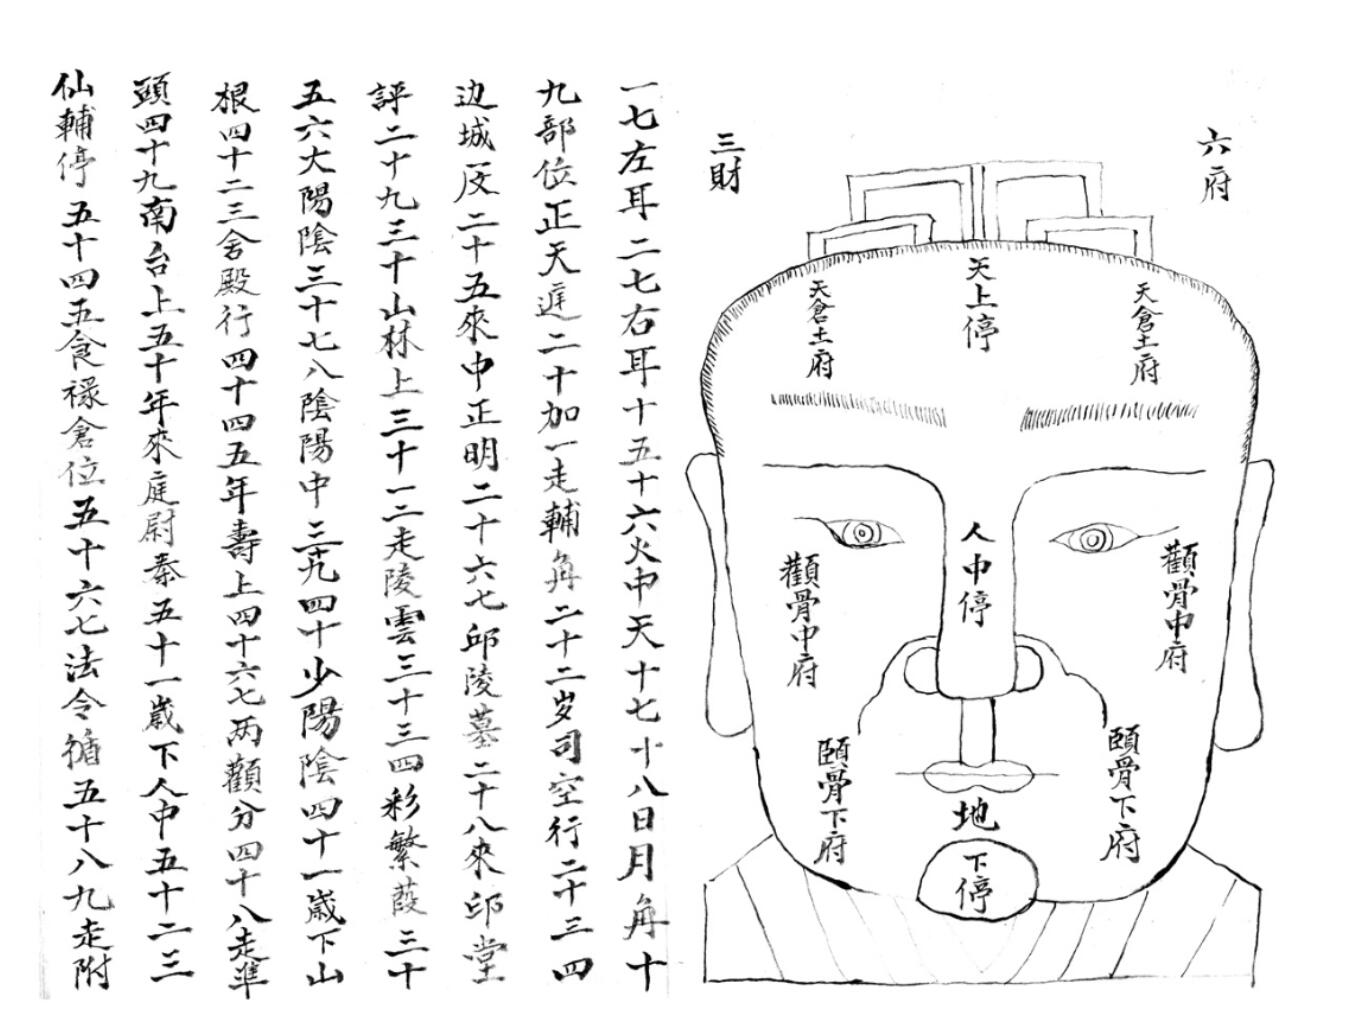 六府
三財
天上停
天倉土府
天倉土府
人中停
顴骨中府
顴骨中府
頤骨下府
頤骨下府
地
下停
一七左耳二七右耳十五十六火中天十七十八日月角十
九部位正天遅二十加一走輔角二十二岁司空行二十三四
边城 二十五來中正明二十六七邱陵墓二十八來印堂
評二十九三十山林上三十一二走陵雲三十三四彩繁葭三十
五六大陽陰三十七八陰陽中三十九四十少陽陰四十一歳下山
根四十二三舍殿行四十四五年壽上四十六七两顴分四十八走準
頭四十九南台上五十年來庭尉秦五十一歳下人中五十二三
仙輔停五十四五食禄倉位五十六七法令循五十八九走附